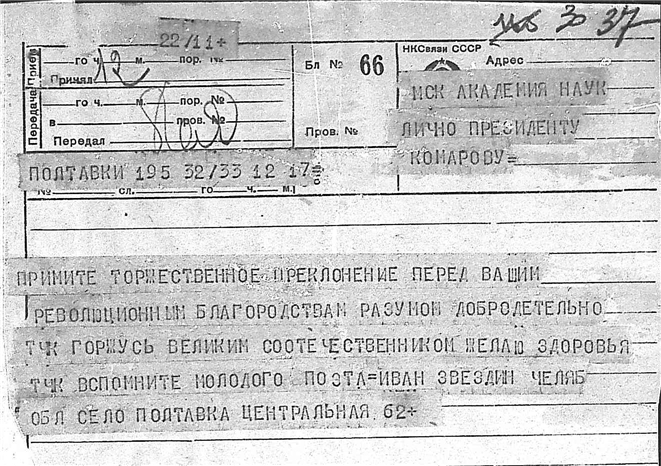 30 37
22/11+
го ч. м. пор. №
Принял 12
Передача Прием
го ч. м. пор. №
в пров. №
Передал
Бл № 66
Пров. №
НКСвязи СССР
Адрес
МСК АКАДЕМИЯ НАУК
ЛИЧНО ПРЕЗИДЕНТУ
КОМАРОВУ=
ПОЛТАВКИ 195 32/33 12 17=
№ сл. го ч. м.
ПРИМИТЕ ТОРЖЕСТВЕННОЕ ПРЕКЛОНЕНИЕ ПЕРЕД ВАШИМ
РЕВОЛЮЦИОННЫМ БЛАГОРОДСТВАМ РАЗУМОМ ДОБРОДЕТЕЛЬНО
ТЧК ГОРЖУСЬ ВЕЛИКИМ СООТЕЧЕСТВЕННИКОМ ЖЕЛАЮ ЗДОРОВЬЯ
ТЧК ВСПОМНИТЕ МОЛОДОГО ПОЭТА=ИВАН ЗВЕЗДИН ЧЕЛЯБ
ОБЛ СЕЛО ПОЛТАВКА ЦЕНТРАЛЬНАЯ 62+